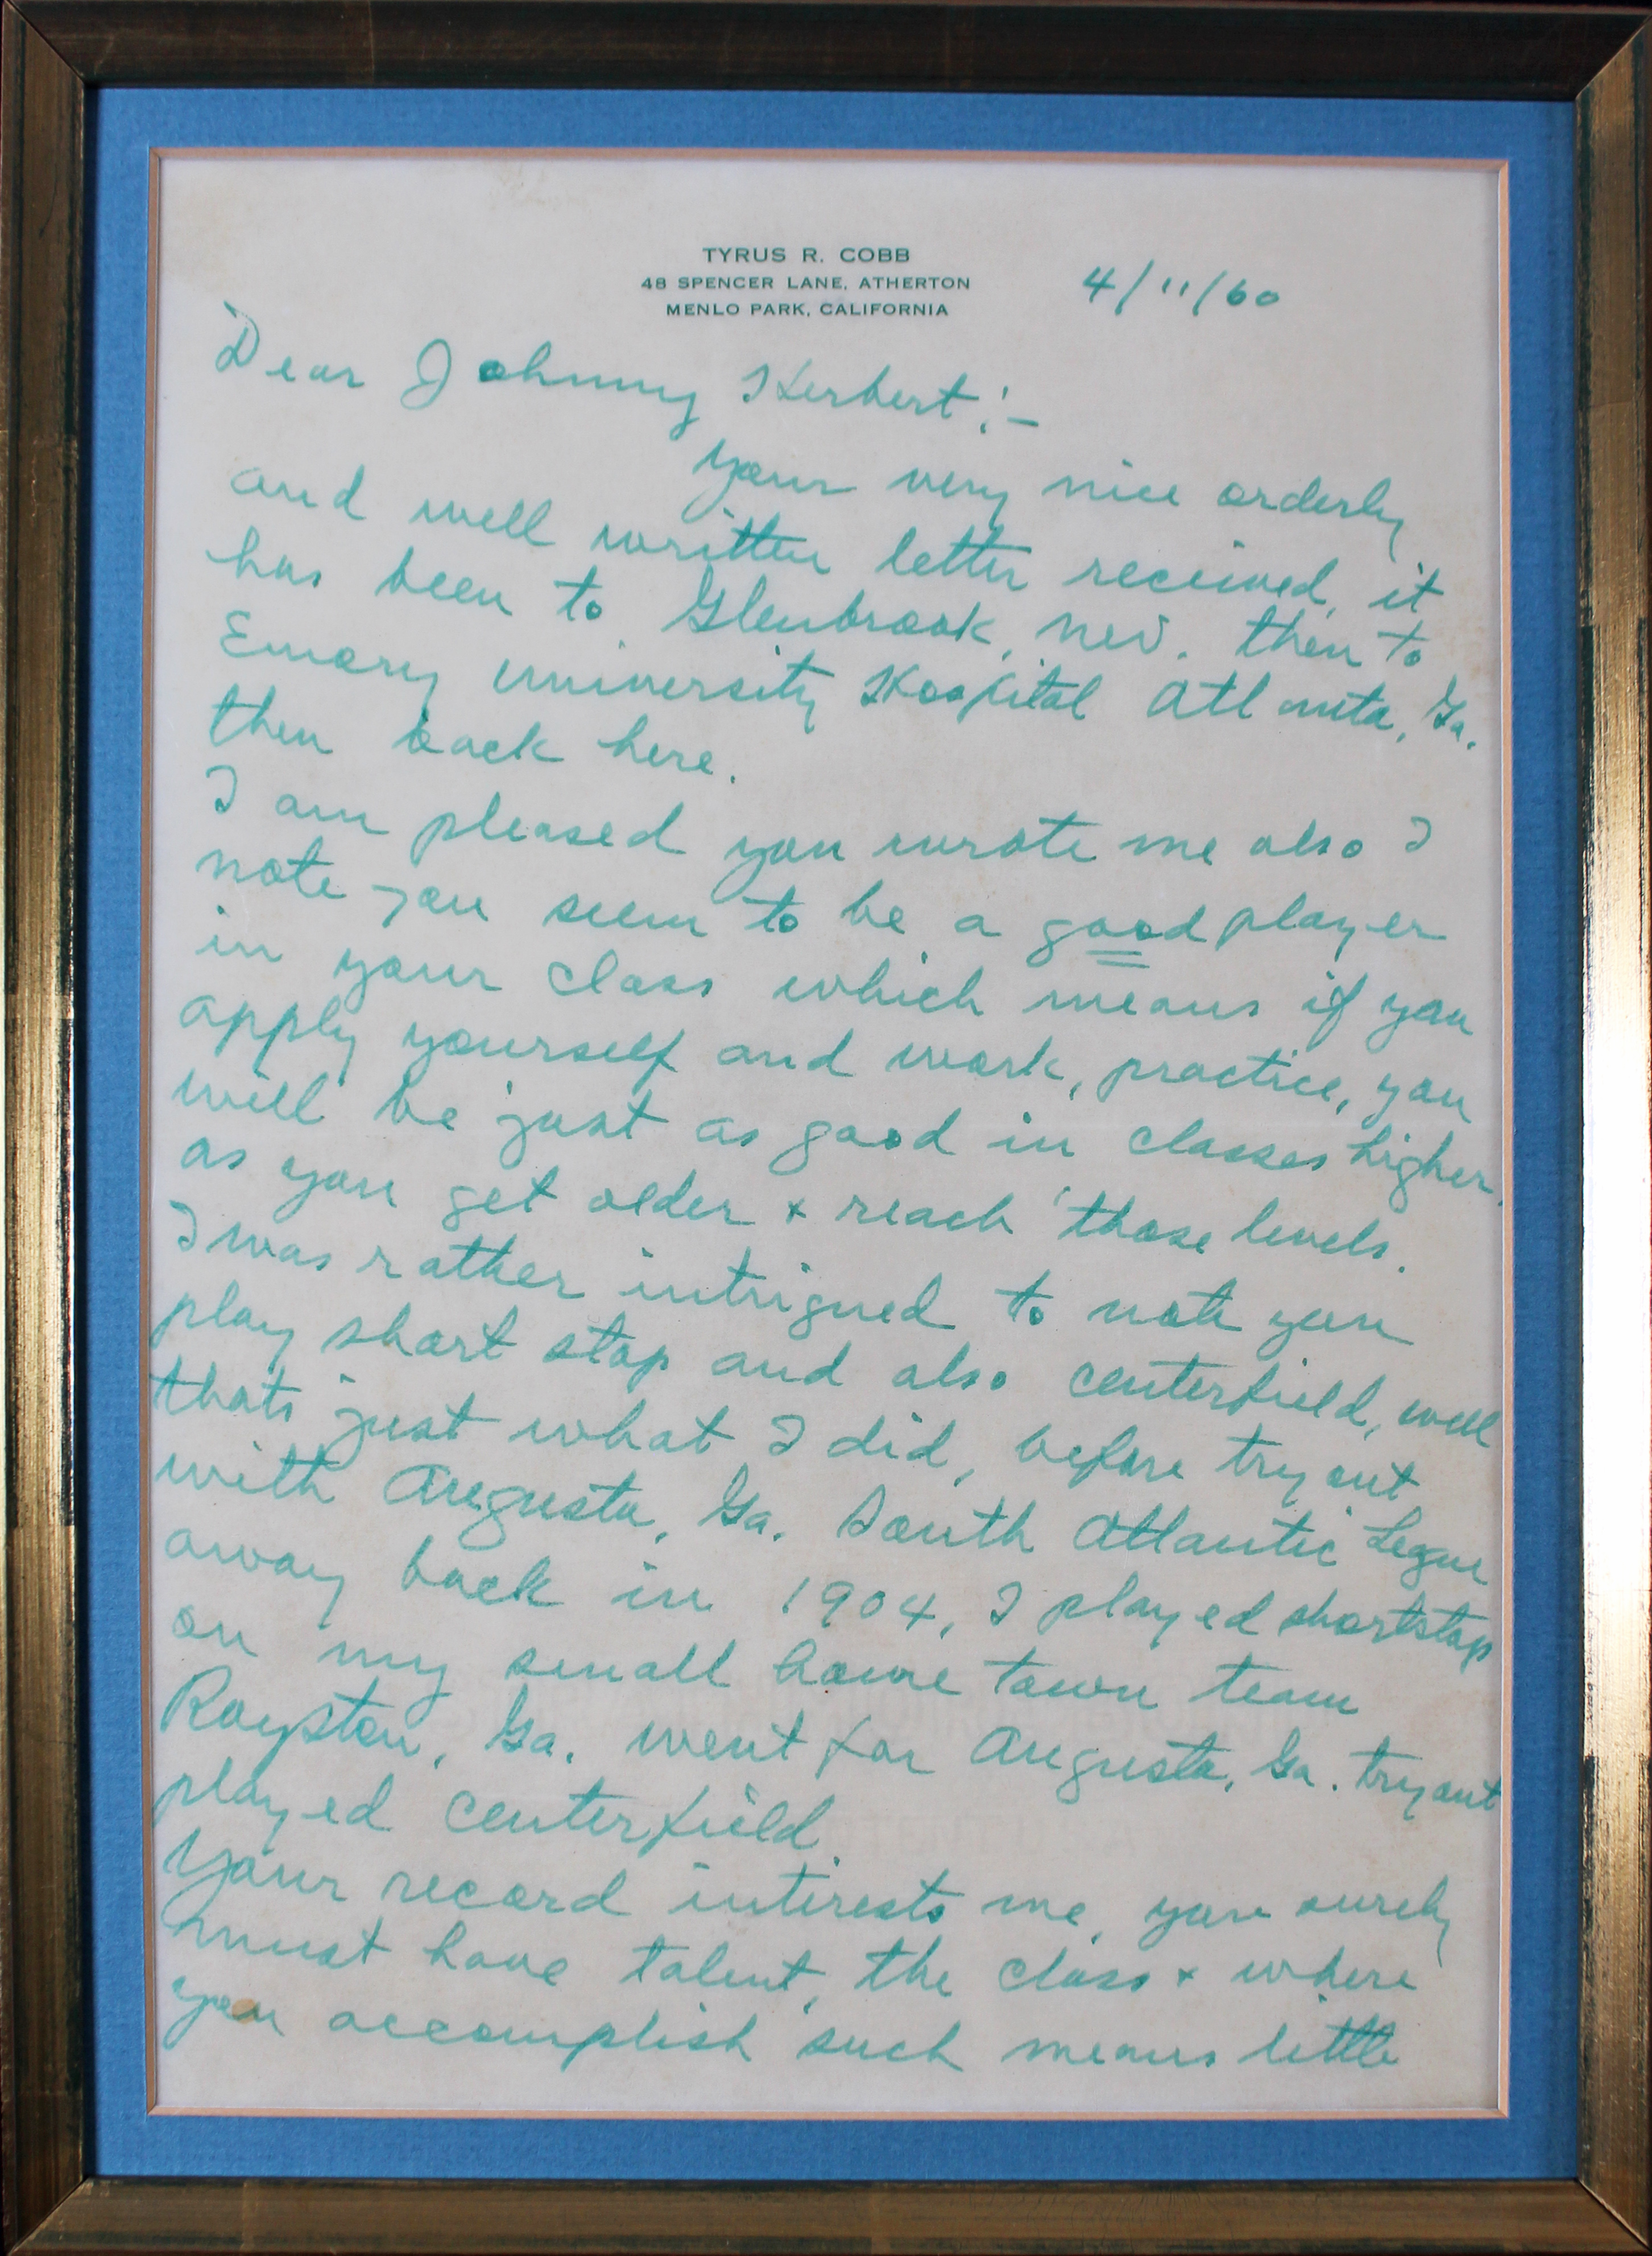 TYRUS R. COBB
48 SPENCER LANE, ATHERTON
MENLO PARK, CALIFORNIA
4/11/60
Dear Johnny Herbert:-
your very nice orderly
and well written letter received, it
has been to Glenbrook, Nev. then to
Emory University Hospital Atlanta, Ga.
then back here.
I am pleased you wrote me also I
note you seem to be a good player
in your class which means if you
apply yourself and work, practice, you
will be just as good in classes higher.
as you get older & reach those levels.
I was rather intrigued to note you
play short stop and also centerfield, well
thats just what I did, before try out
with Augusta, Ga. South Atlantic Legue
away back in 1904, I played shortstop
on my small home town team
Royston, Ga. went for Augusta, Ga. tryout
played centerfield.
Your record interests me, you surely
must have talent, the class & where
you accomplish such means little